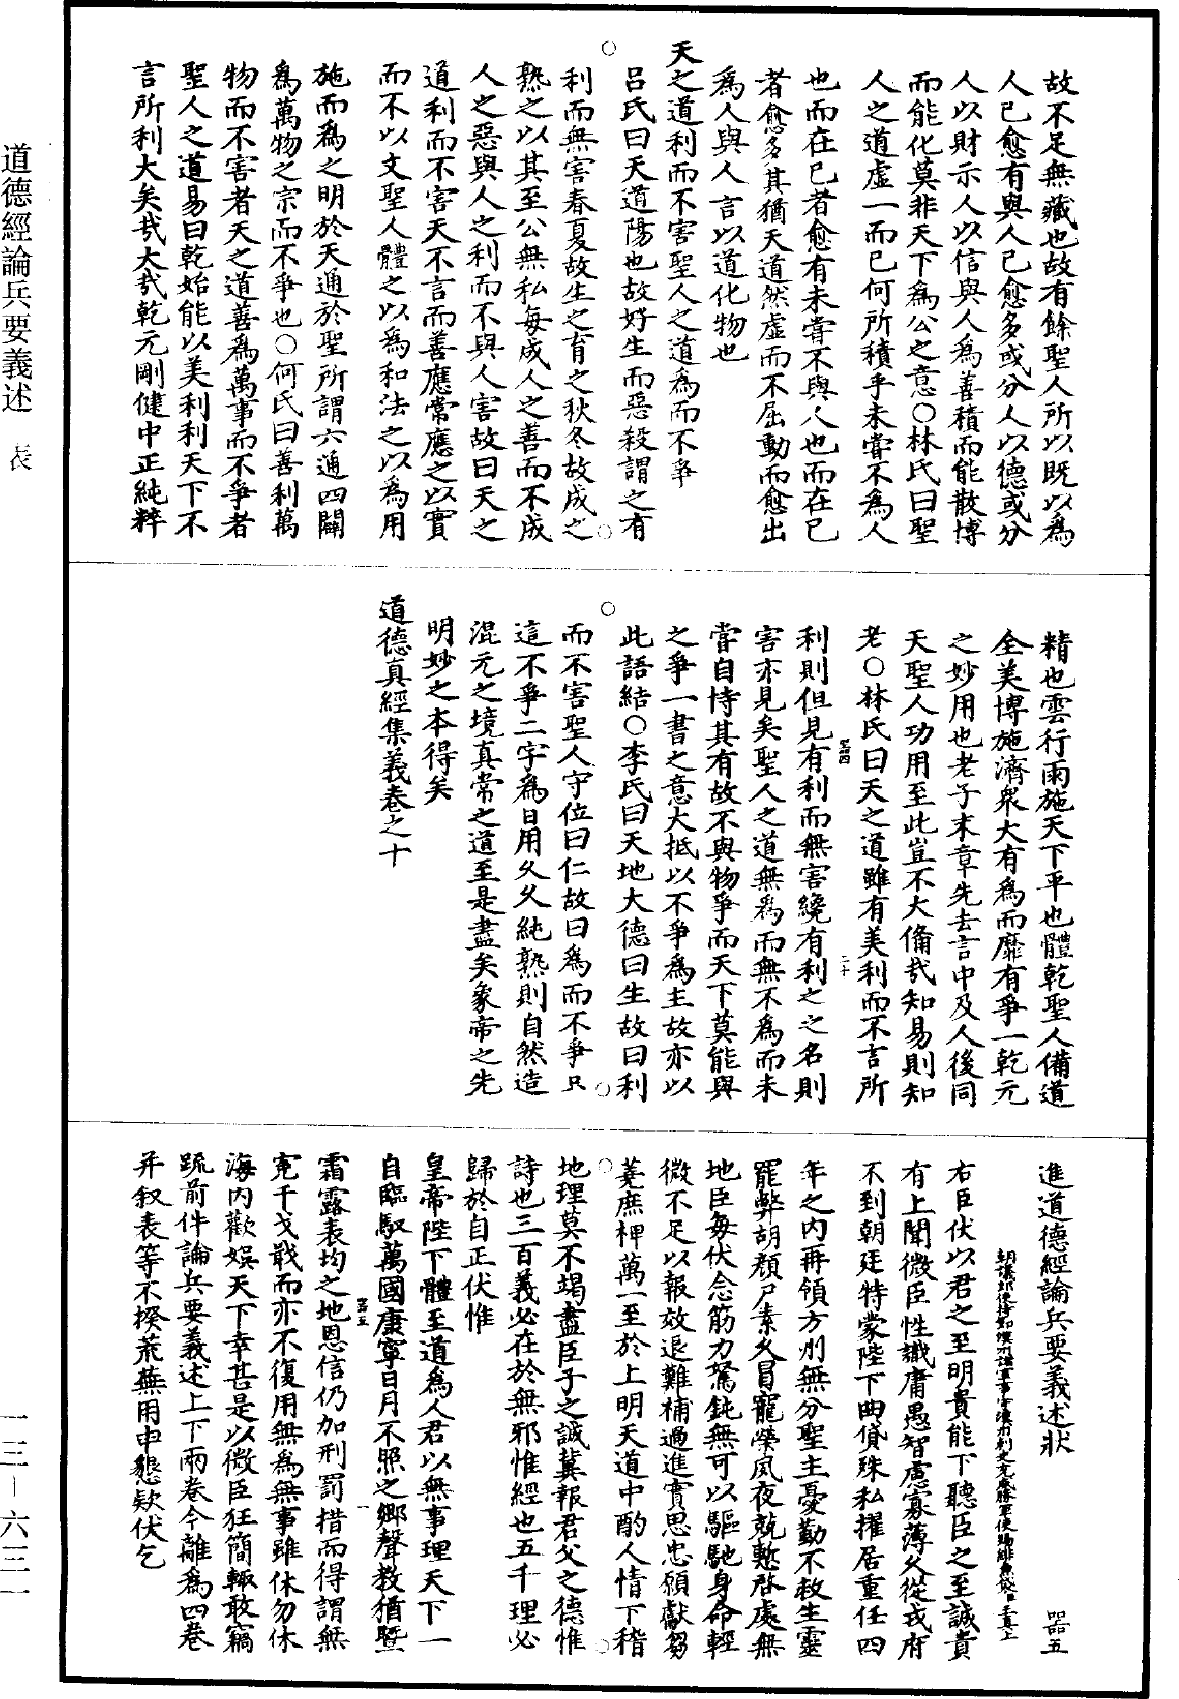 故不足無藏也故有餘聖人所以既以為
人己愈有與人己愈多或分人以德或分
人以財示人以信與人為善積而能散博
而能化莫非天下為公之意○林氏曰聖
人之道虛一而已何所積乎未嘗不為人
也而在己者愈有未嘗不與人也而在己
者愈多其猶天道然虛而不屈動而愈出
為人與人言以道化物也
天之道利而不害聖人之道為而不爭
呂氏曰天道陽也故好生而惡殺謂之有
利而無害春夏故生之育之秋冬故成之
熟之以其至公無私每成人之善而不成
人之惡與人之利而不與人害故曰天之
道利而不害天不言而善應常應之以實
而不以文聖人體之以為和法之以為用
施而為之明於天通於聖所謂六通四闢
為萬物之宗而不爭也○何氏曰善利萬
物而不害者天之道善為萬事而不爭者
聖人之道易曰乾始能以美利利天下不
言所利大矣哉大哉乾元剛健中正純粹
精也雲行雨施天下平也體乾聖人備道
全美博施濟眾大有為而靡有爭一乾元
之妙用也老子末章先去言中及人後同
天聖人功用至此豈不大備哉知易則知
老○林氏曰天之道雖有美利而不言所
利則但見有利而無害纔有利之之名則
害亦見矣聖人之道無為而無不為而未
嘗自恃其有故不與物爭而天下莫能與
之爭一書之意大抵以不爭為主故亦以
此語結○李氏曰天地大德曰生故曰利
而不害聖人守位曰仁故曰為而不爭只
這不爭二字為日用久久純熟則自然造
混元之境真常之道至是盡矣象帝之先
明妙之本得矣
道德真經集義卷之十
進道德經論兵要義述狀 器五
朝議郎使持節漢州諸軍事守漢州刺史充威勝軍使賜緋魚袋臣王真上
右臣伏以君之至明貴能下聽臣之至誠貴
有上聞微臣性識庸愚智慮寡薄久從戎府
不到朝廷特蒙陛下曲貸殊私擢居重任四
年之內再領方州無分聖主憂勤不救生靈
罷弊胡顏尸素久冒寵榮夙夜兢慙啓處無
地臣每伏念筋力駑鈍無可以驅馳身命輕
微不足以報效退難補過進實思忠願獻芻
蕘庶裨萬一至於上明天道中酌人情下稽
地理莫不竭盡臣子之誠冀報君父之德惟
詩也三百義必在於無邪惟經也五千理必
歸於自正伏惟
皇帝陛下體至道為人君以無事理天下一
自臨馭萬國康寧日月不照之鄉聲教猶暨
霜露表均之地恩信仍加刑罰措而得謂無
冤干戈戢而亦不復用無為無事雖休勿休
海內歡娛天下幸甚是以微臣狂簡輒敢竊
疏前件論兵要義述上下兩卷今離為四卷
并叙表等不揆荒蕪用申懇欵伏乞
道德經論兵要義述 表
一三—六三一